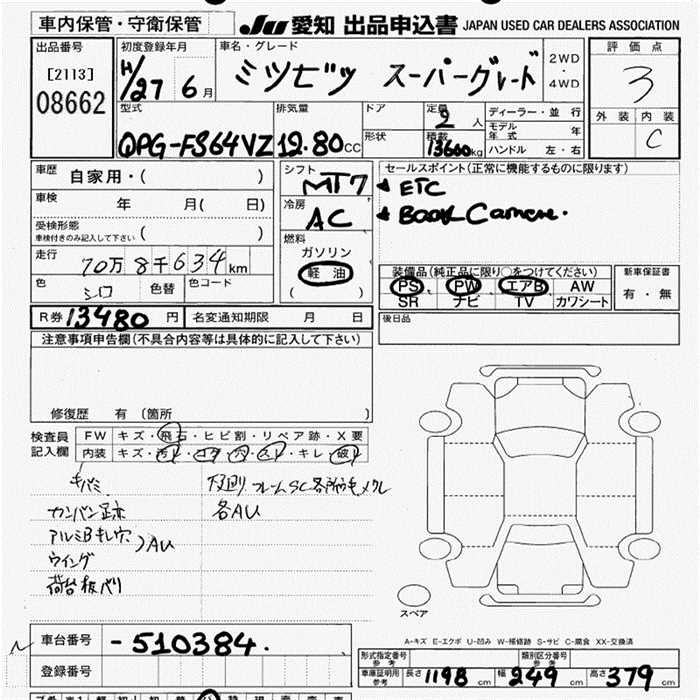 車内保管・守衛保管 JU 愛知 出品申込書 JAPAN USED CAR DEALERS ASSOCIATION
出品番号 [2113] 08662
初度登録年月 H/27 6月
車名・グレード ミツビシ スーパーグレード
2WD・4WD
評価点 3
外装 内装 C
型式 QPG-FS64VZ
排気量 12.80CC
ドア 形状
定員 2人
積載 13600kg
ディーラー・並行
モデル年式 年
ハンドル 左・右
車歴 自家用・( )
シフト MT7
セールスポイント(正常に機能するものに限ります)
ETC
車検 年 月( 日)
冷房 AC
受検形態 車検付きのみ記入して下さい ( )
燃料 ガソリン 軽油 ( )
走行 70万8千634km
色 シロ 色替 色コード
装備品(純正品に限り○をつけてください)
PS PW エアB AW
SR ナビ TV カワシート
新車保証書 有・無
R券 13480円 名変通知期限 月 日
後日品
注意事項申告欄(不具合内容等は具体的に記入して下さい)
修復歴 有 (箇所 )
検査員記入欄
FW キズ・飛石・ヒビ割・リペア跡・X要
内装 キズ・汚れ・コゲ・穴・スレ・キレ・破れ
キバミ
カンバン跡 各AU
アルミBキレ穴 )AU
ウイング
荷台板バリ
スペア
A-キズ E-エクボ U-凹み W-補修跡 S-サビ C-腐食 XX-交換済
車台番号 -510384.
登録番号
型式指定番号 参考 類別区分番号 参考
車庫証明用 参考 長さ 1198cm 幅 249cm 高さ 379cm